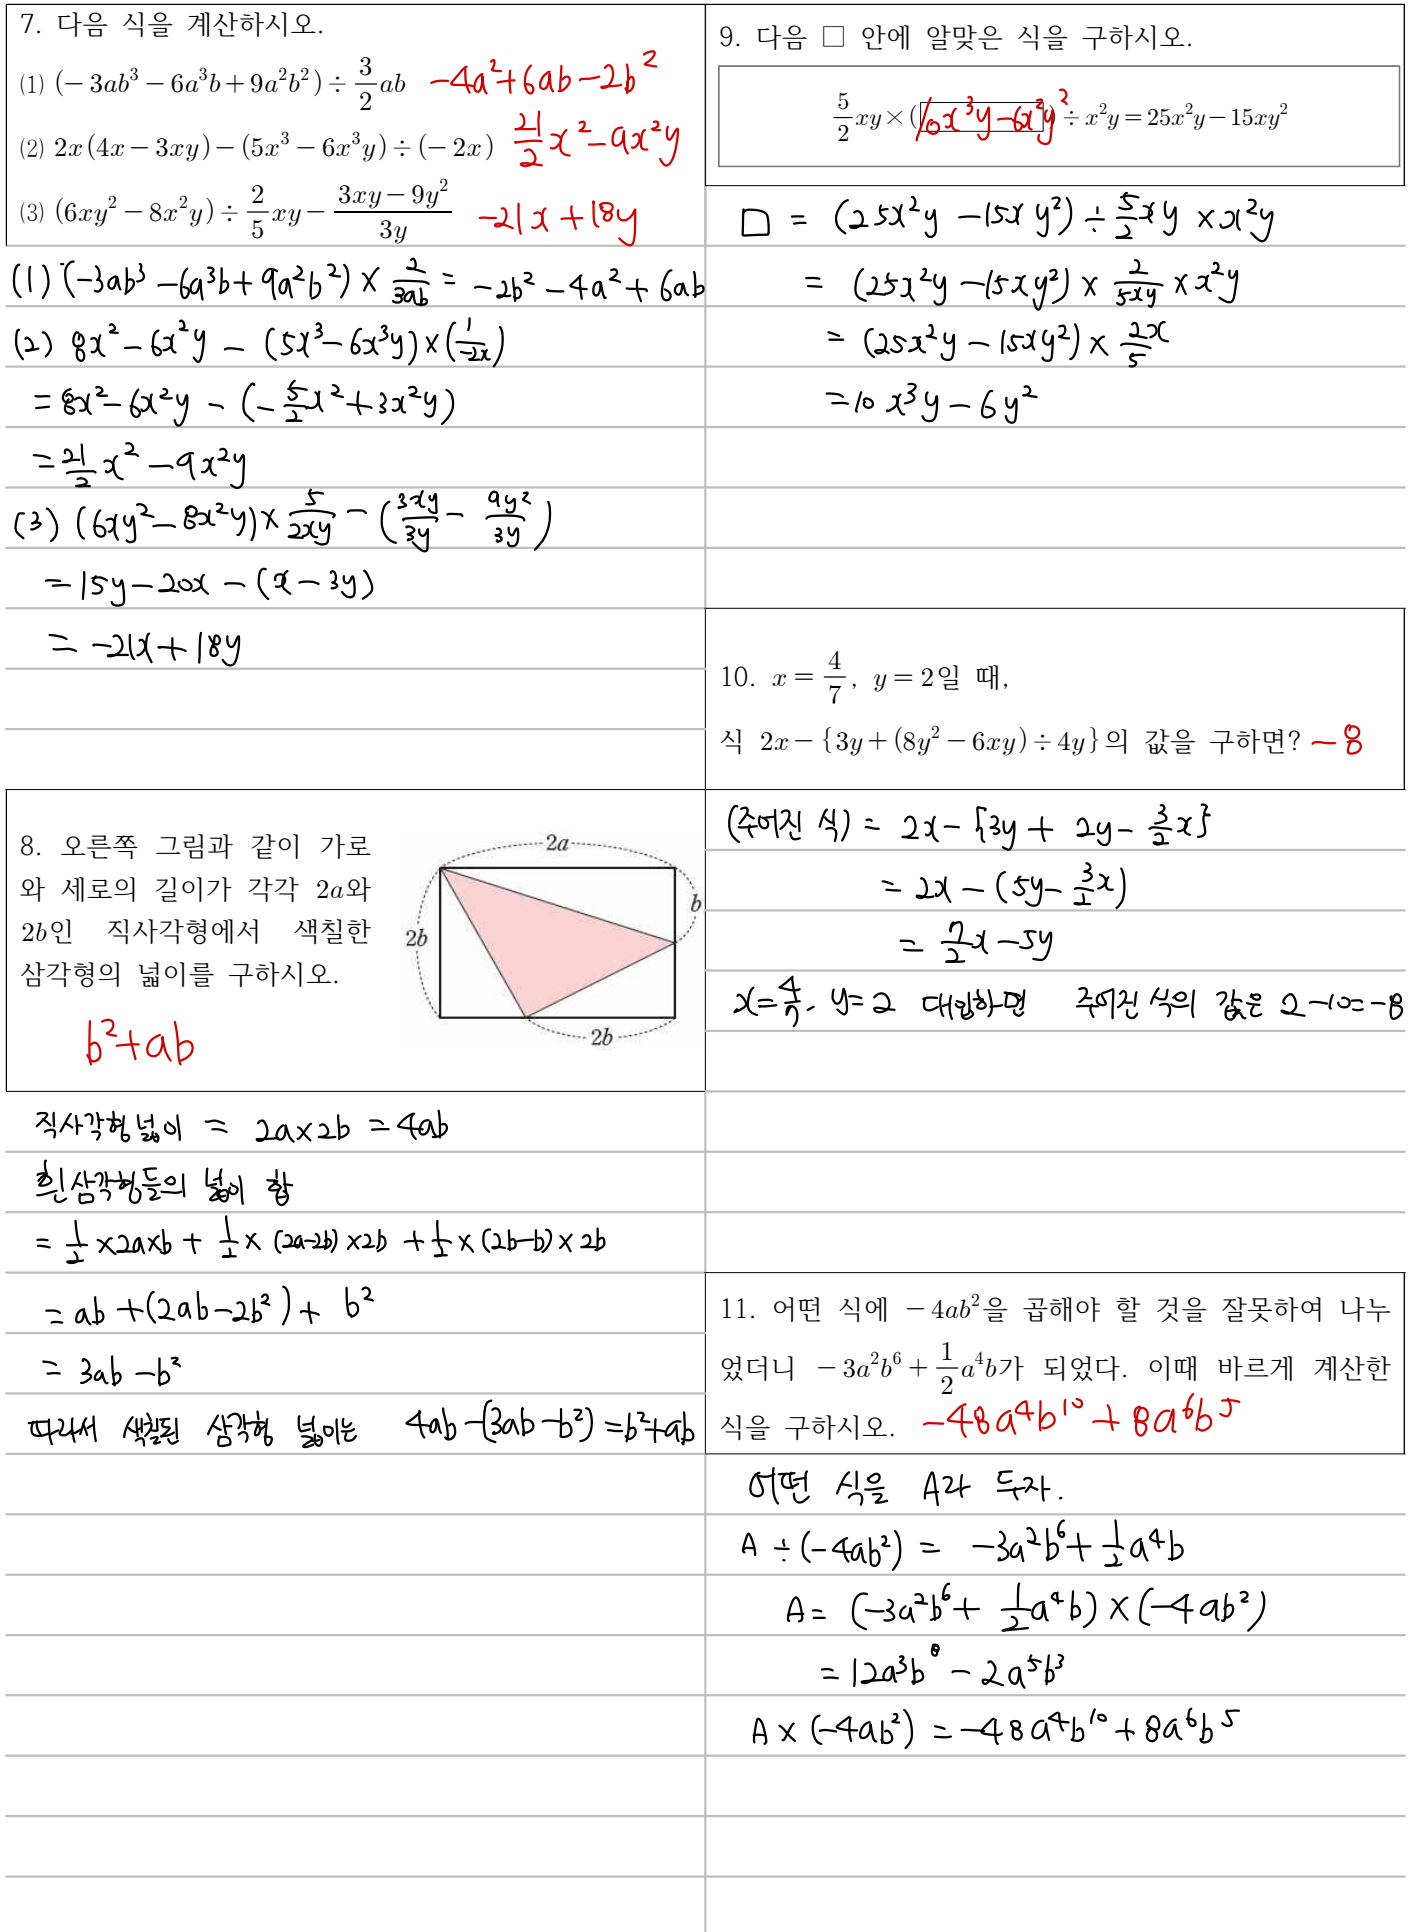 7. 다음 식을 계산하시오.
(1) (-3ab³-6a³b+9a²b²)÷3/2 ab -4a²+6ab-2b²
(2) 2x(4x-3xy)-(5x³-6x³y)÷(-2x) 21/2 x²-9x²y
(3) (6xy²-8x²y)÷2/5 xy-(3xy-9y²)/3y -21x+18y
(1) (-3ab³-6a³b+9a²b²)×2/3ab = -2b²-4a²+6ab
(2) 8x²-6x²y-(5x³-6x³y)×(1/-2x)
=8x²-6x²y-(-5/2 x²+3x²y)
=21/2 x²-9x²y
(3) (6xy²-8x²y)×5/2xy-(3xy/3y-9y²/3y)
=15y-20x-(x-3y)
= -21x+18y
8. 오른쪽 그림과 같이 가로
와 세로의 길이가 각각 2a와
2b인 직사각형에서 색칠한
삼각형의 넓이를 구하시오.
b²+ab
2a
b
2b
2b
직사각형넓이 = 2a×2b=4ab
흰삼각형들의 넓이 합
= 1/2×2a×b+1/2×(2a-2b)×2b+1/2×(2b-b)×2b
= ab+(2ab-2b²)+b²
= 3ab-b²
따라서 색칠된 삼각형 넓이는 4ab-(3ab-b²)=b²+ab
9. 다음 □ 안에 알맞은 식을 구하시오.
5/2 xy×(10x³y-6x²y²)÷x²y=25x²y-15xy²
□ = (25x²y-15xy²)÷5/2 xy×x²y
= (25x²y-15xy²)×2/5xy×x²y
= (25x²y-15xy²)×2x/5
=10x³y-6y²
10. x=4/7, y=2일 때,
식 2x-{3y+(8y²-6xy)÷4y}의 값을 구하면? -8
(주어진 식) = 2x-{3y+2y-3/2 x}
= 2x-(5y-3/2 x)
= 7/2 x-5y
x=4/7, y=2 대입하면 주어진 식의 값은 2-10=-8
11. 어떤 식에 -4ab²을 곱해야 할 것을 잘못하여 나누
었더니 -3a²b⁶+1/2 a⁴b가 되었다. 이때 바르게 계산한
식을 구하시오. -48a⁴b¹⁰+8a⁶b⁵
어떤 식을 A라 두자.
A÷(-4ab²) = -3a²b⁶+1/2 a⁴b
A= (-3a²b⁶+1/2 a⁴b)×(-4ab²)
=12a³b⁸-2a⁵b³
A×(-4ab²) =-48a⁴b¹⁰+8a⁶b⁵